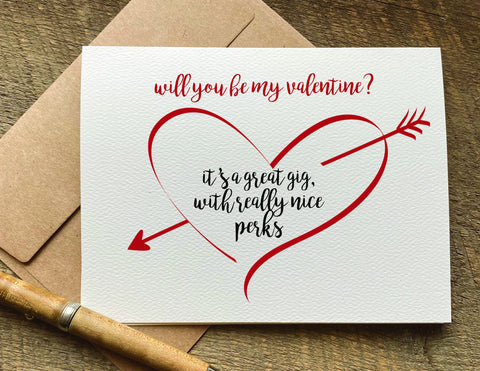 will you be my valentine?
it's a great gig,
with really nice
perks